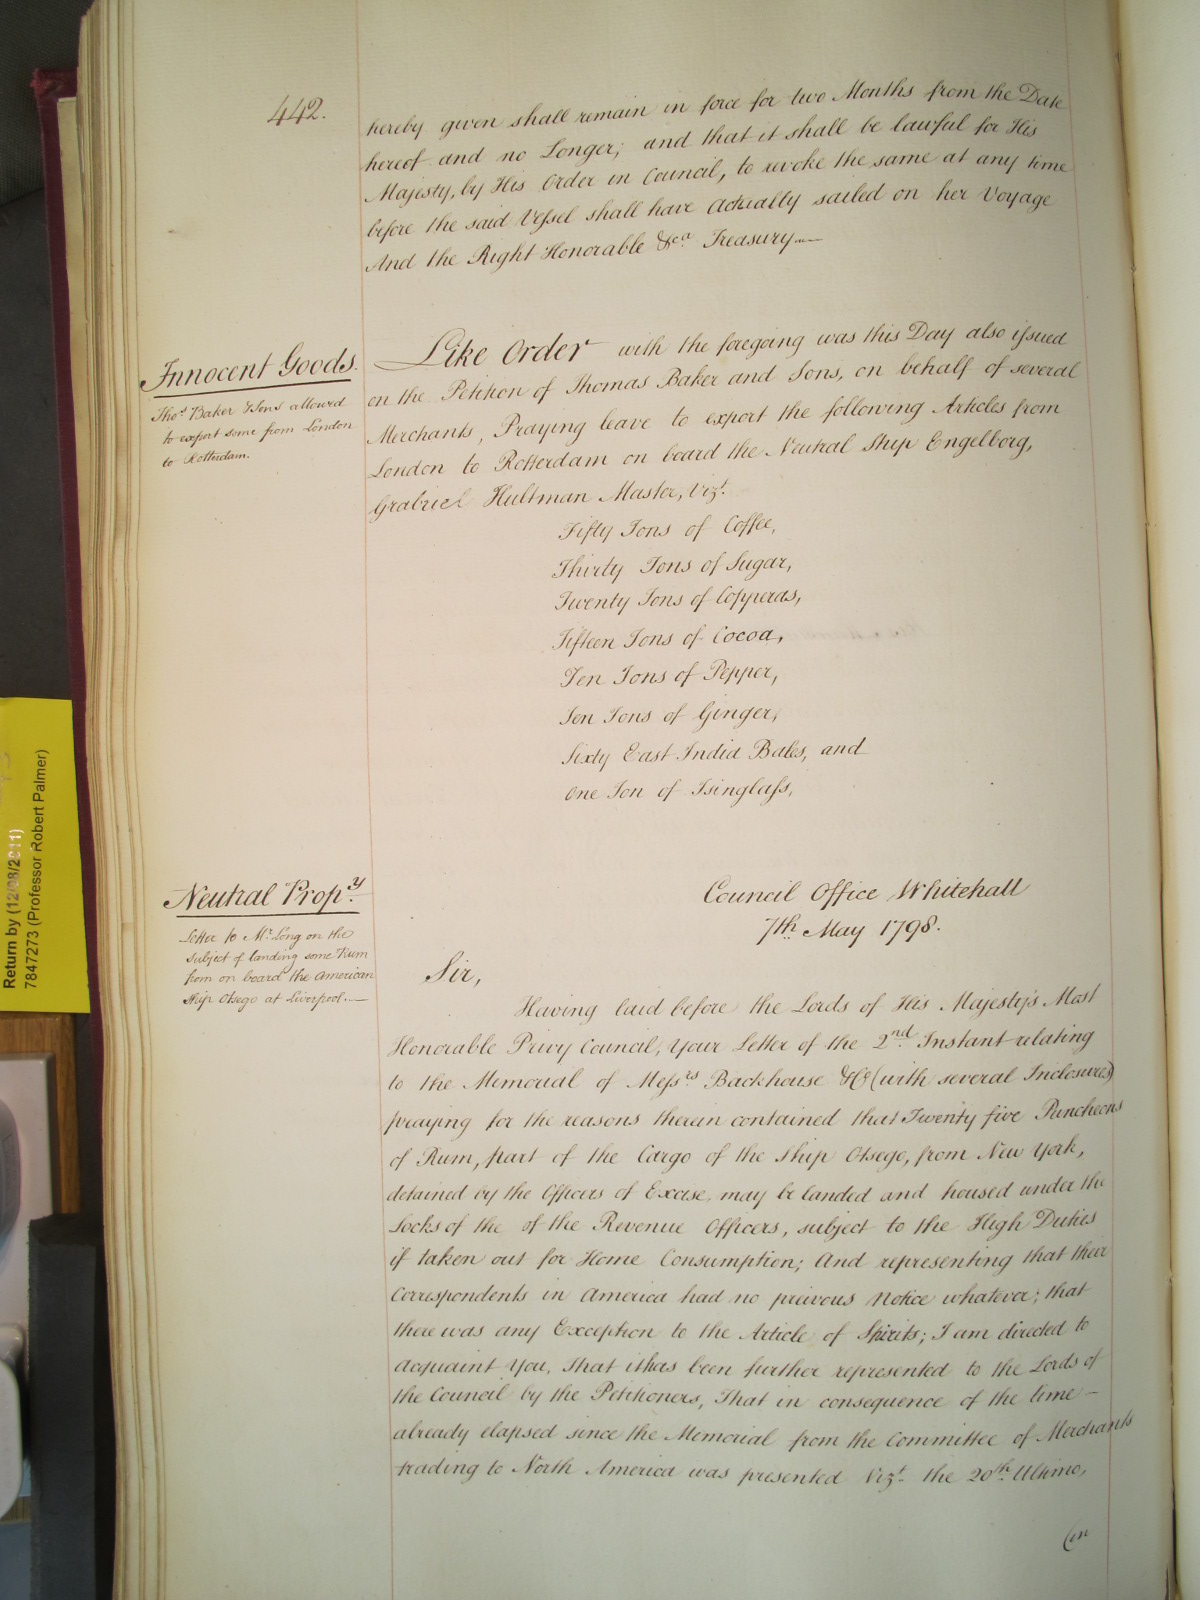 442.
hereby given shall remain in force for two Months from the Date
hereof and no Longer; and that it shall be lawful for His
Majesty, by His Order in Council, to revoke the same at any time
before the said Vessel shall have Actually sailed on her Voyage
And the Right Honorable &ca. Treasury
Innocent Goods.
Thos. Baker & Sons allowed
to export some from London
to Rotterdam.
Like Order with the foregoing was this Day also issued
on the Petition of Thomas Baker and Sons, on behalf of several
Merchants, Praying leave to export the following Articles from
London to Rotterdam on board the Neutral Ship Engelborg,
Grabriel Hultman Master, Vizt.
Fifty Tons of Coffee,
Thirty Tons of Sugar,
Twenty Tons of Copperas,
Fifteen Tons of Cocoa,
Ten Tons of Pepper,
Ten Tons of Ginger,
Sixty East India Bales, and
One Ton of Isinglass,
Return by (12/08/2011)
7847273 (Professor Robert Palmer)
Neutral Propy.
Letter to Mr. Long on the
subject of landing some Rum
from on board the American
Ship Otsego at Liverpool.
Council Office Whitehall
7th. May 1798.
Sir,
Having laid before the Lords of His Majesty's Most
Honorable Privy Council, Your Letter of the 2nd. Instant relating
to the Memorial of Messrs Backhouse & Co (with several Inclosures)
praying for the reasons therein contained that Twenty five Puncheons
of Rum, part of the Cargo of the Ship Otsego, from New York,
detained by the Officers of Excise, may be landed and housed under the
Locks of the of the Revenue Officers, subject to the High Duties
if taken out for Home Consumption; And representing that their
Correspondents in America had no previous Notice whatever; that
there was any Exception to the Article of Spirits; I am directed to
acquaint You, That it has been further represented to the Lords of
the Council by the Petitioners, That in consequence of the time
already elapsed since the Memorial from the Committee of Merchants
trading to North America was presented Vizt. the 20th. Ultimo,
(in